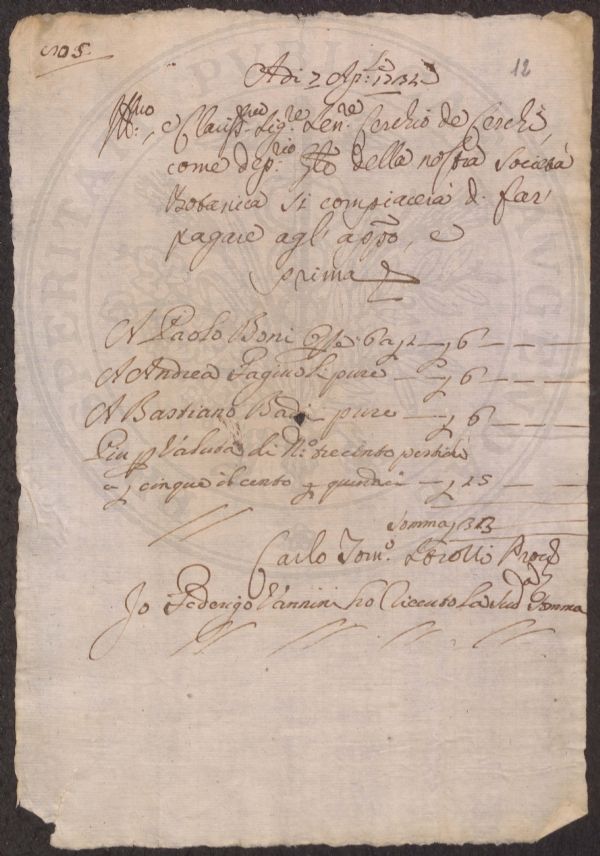 105.
12
Adi 2 Ap.le 1734
Ill.mo, e Clariss.mo Sig.re Sen.re Cerchio de Cerchi,
come dep.rio della nostra Società
Botanica si compiacerà di far
pagare agl' app.o, e
prima
A Paolo Boni Op.e 6 a 12 — 6 — — —
A Andrea Fagiuoli pure — 6 — — —
A Bastiano Badi pure — 6 — — —
Piu p Valuta di N.o trecento pertiche
a cinque il cento quindici — 15 — —
Somma 33
Carlo Tom.o
Io Federigo Vannini ho riceuto la sud.a somma